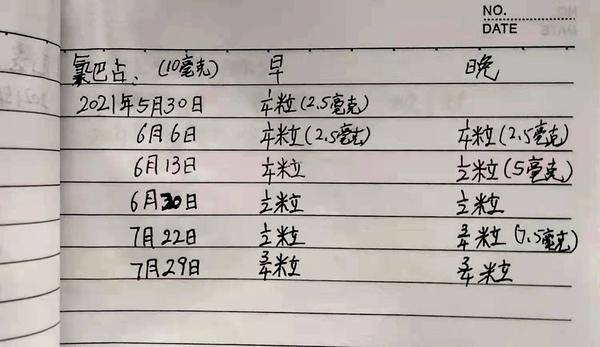 NO.
DATE
氯巴占、(10毫克) 早 晚
2021年5月30日 1/4粒(2.5毫克)
6月6日 1/4粒(2.5毫克) 1/4粒(2.5毫克)
6月13日 1/4粒 1/2粒(5毫克)
6月30日 1/2粒 1/2粒
7月22日 1/2粒 3/4粒(7.5毫克)
7月29日 3/4粒 3/4粒